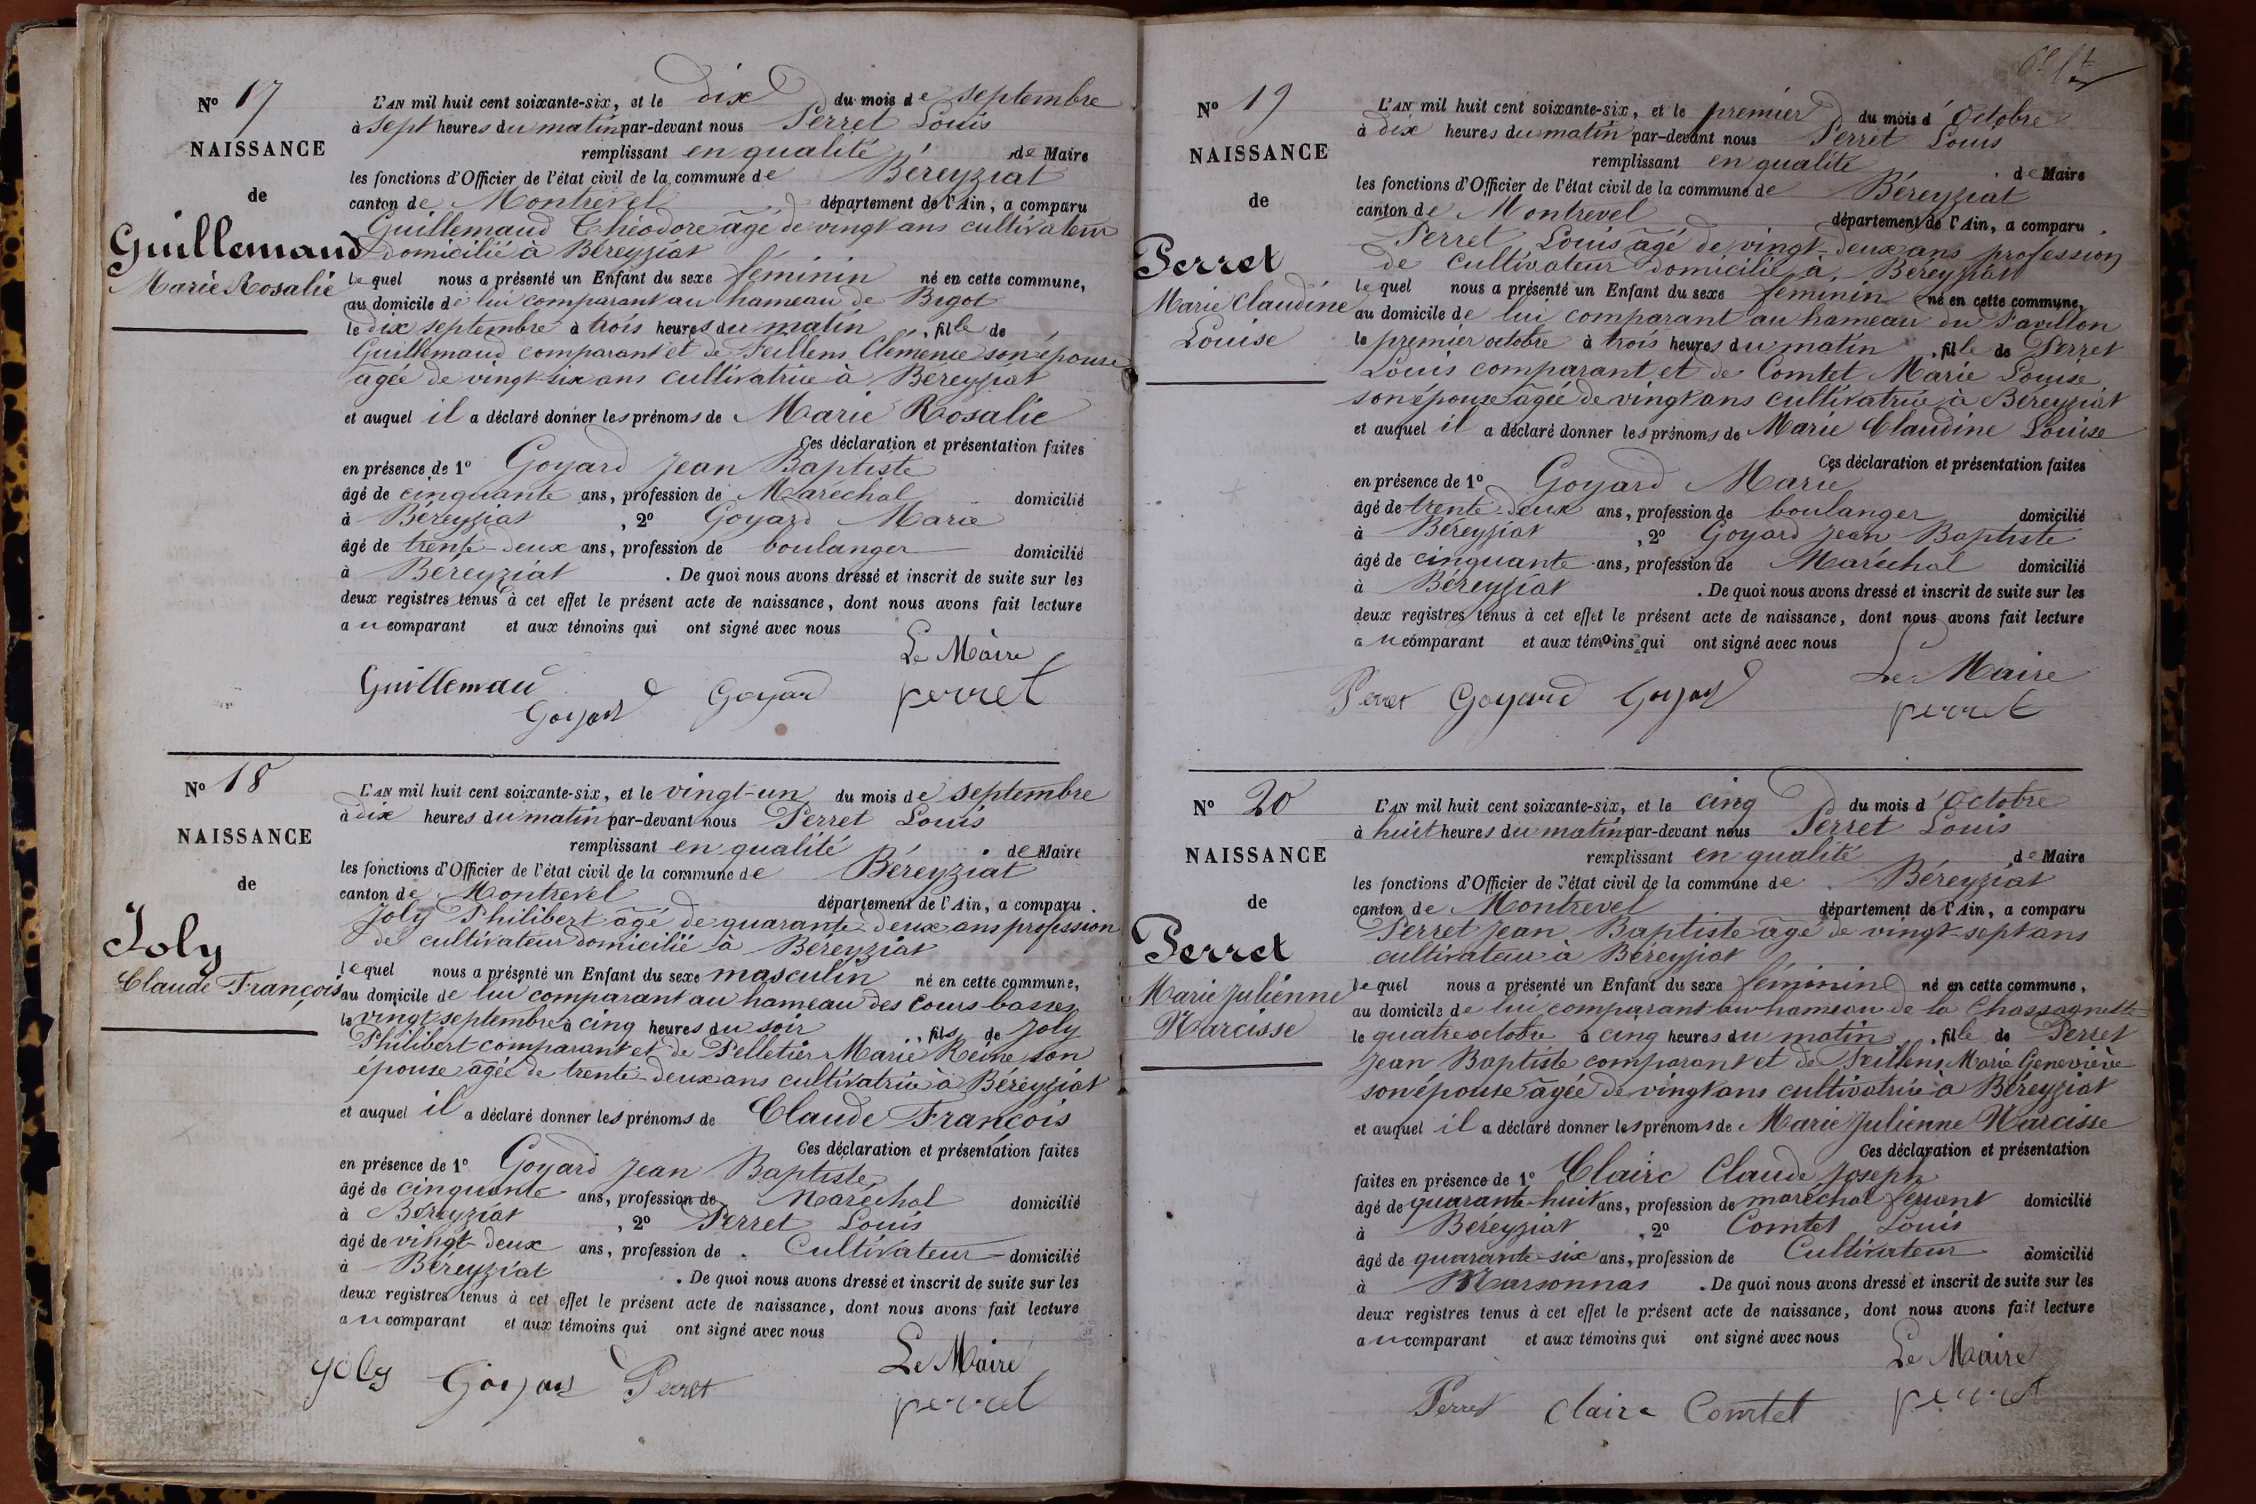 N° 17
NAISSANCE
de
Guillemaud
Marie Rosalie
L'AN mil huit cent soixante-six, et le dix du mois de septembre
à sept heures du matin par-devant nous Perret Louis
remplissant en qualité de Maire
les fonctions d'Officier de l'état civil de la commune de Béreyziat
canton de Montrevel département de l'Ain, a comparu
Guillemaud Théodore âgé de vingt ans cultivateur
domicilié à Béreyziat
lequel nous a présenté un Enfant du sexe féminin né en cette commune,
au domicile de lui comparant au hameau de Bigot
le dix septembre à trois heures du matin, fille de
Guillemaud comparant et de Feillens Clémence son épouse
âgée de vingt-six ans cultivatrice à Béreyziat
et auquel il a déclaré donner les prénoms de Marie Rosalie
Ces déclaration et présentation faites
en présence de 1° Goyard Jean Baptiste
âgé de cinquante ans, profession de Maréchal domicilié
à Béreyziat, 2° Goyard Marie
âgé de trente-deux ans, profession de boulanger domicilié
à Béreyziat. De quoi nous avons dressé et inscrit de suite sur les
deux registres tenus à cet effet le présent acte de naissance, dont nous avons fait lecture
au comparant et aux témoins qui ont signé avec nous
Le Maire
Guillemaud Goyard Goyard perret
N° 18
NAISSANCE
de
Joly
Claude François
L'AN mil huit cent soixante-six, et le vingt-un du mois de septembre
à dix heures du matin par-devant nous Perret Louis
remplissant en qualité de Maire
les fonctions d'Officier de l'état civil de la commune de Béreyziat
canton de Montrevel département de l'Ain, a comparu
Joly Philibert âgé de quarante-deux ans profession
de cultivateur domicilié à Béreyziat
lequel nous a présenté un Enfant du sexe masculin né en cette commune,
au domicile de lui comparant au hameau des Cours basses
le vingt septembre à cinq heures du soir, fils de Joly
Philibert comparant et de Pelletier Marie Reine son
épouse âgée de trente-deux ans cultivatrice à Béreyziat
et auquel il a déclaré donner les prénoms de Claude François
Ces déclaration et présentation faites
en présence de 1° Goyard Jean Baptiste
âgé de cinquante ans, profession de Maréchal domicilié
à Béreyziat, 2° Perret Louis
âgé de vingt-deux ans, profession de Cultivateur domicilié
à Béreyziat. De quoi nous avons dressé et inscrit de suite sur les
deux registres tenus à cet effet le présent acte de naissance, dont nous avons fait lecture
au comparant et aux témoins qui ont signé avec nous
Le Maire
joly Goyard Perret perret
N° 19
NAISSANCE
de
Perret
Marie Claudine
Louise
L'AN mil huit cent soixante-six, et le premier du mois d'Octobre
à dix heures du matin par-devant nous Perret Louis
remplissant en qualité de Maire
les fonctions d'Officier de l'état civil de la commune de Béreyziat
canton de Montrevel département de l'Ain, a comparu
Perret Louis âgé de vingt-deux ans profession
de cultivateur domicilié à Béreyziat
lequel nous a présenté un Enfant du sexe féminin né en cette commune,
au domicile de lui comparant au hameau du Pavillon
le premier octobre à trois heures du matin, fille de Perret
Louis comparant et de Comtet Marie Louise
son épouse âgée de vingt ans cultivatrice à Béreyziat
et auquel il a déclaré donner les prénoms de Marie Claudine Louise
Ces déclaration et présentation faites
en présence de 1° Goyard Marie
âgé de trente-deux ans, profession de boulanger domicilié
à Béreyziat, 2° Goyard Jean Baptiste
âgé de cinquante ans, profession de Maréchal domicilié
à Béreyziat. De quoi nous avons dressé et inscrit de suite sur les
deux registres tenus à cet effet le présent acte de naissance, dont nous avons fait lecture
au comparant et aux témoins qui ont signé avec nous
Le Maire
Perret Goyard Goyard perret
N° 20
NAISSANCE
de
Perret
Marie Julienne
Narcisse
L'AN mil huit cent soixante-six, et le cinq du mois d'Octobre
à huit heures du matin par-devant nous Perret Louis
remplissant en qualité de Maire
les fonctions d'Officier de l'état civil de la commune de Béreyziat
canton de Montrevel département de l'Ain, a comparu
Perret Jean Baptiste âgé de vingt-sept ans
cultivateur à Béreyziat
lequel nous a présenté un Enfant du sexe féminin né en cette commune,
au domicile de lui comparant au hameau de la Chassagnette
le quatre octobre à cinq heures du matin, fille de Perret
Jean Baptiste comparant et de Feillens Marie Geneviève
son épouse âgée de vingt ans cultivatrice à Béreyziat
et auquel il a déclaré donner les prénoms de Marie Julienne Narcisse
Ces déclaration et présentation
faites en présence de 1° Claire Claude Joseph
âgé de quarante-huit ans, profession de maréchal ferrant domicilié
à Béreyziat, 2° Comtet Louis
âgé de quarante-six ans, profession de Cultivateur domicilié
à Marsonnas. De quoi nous avons dressé et inscrit de suite sur les
deux registres tenus à cet effet le présent acte de naissance, dont nous avons fait lecture
au comparant et aux témoins qui ont signé avec nous
Le Maire
Perret Claire Comtet perret